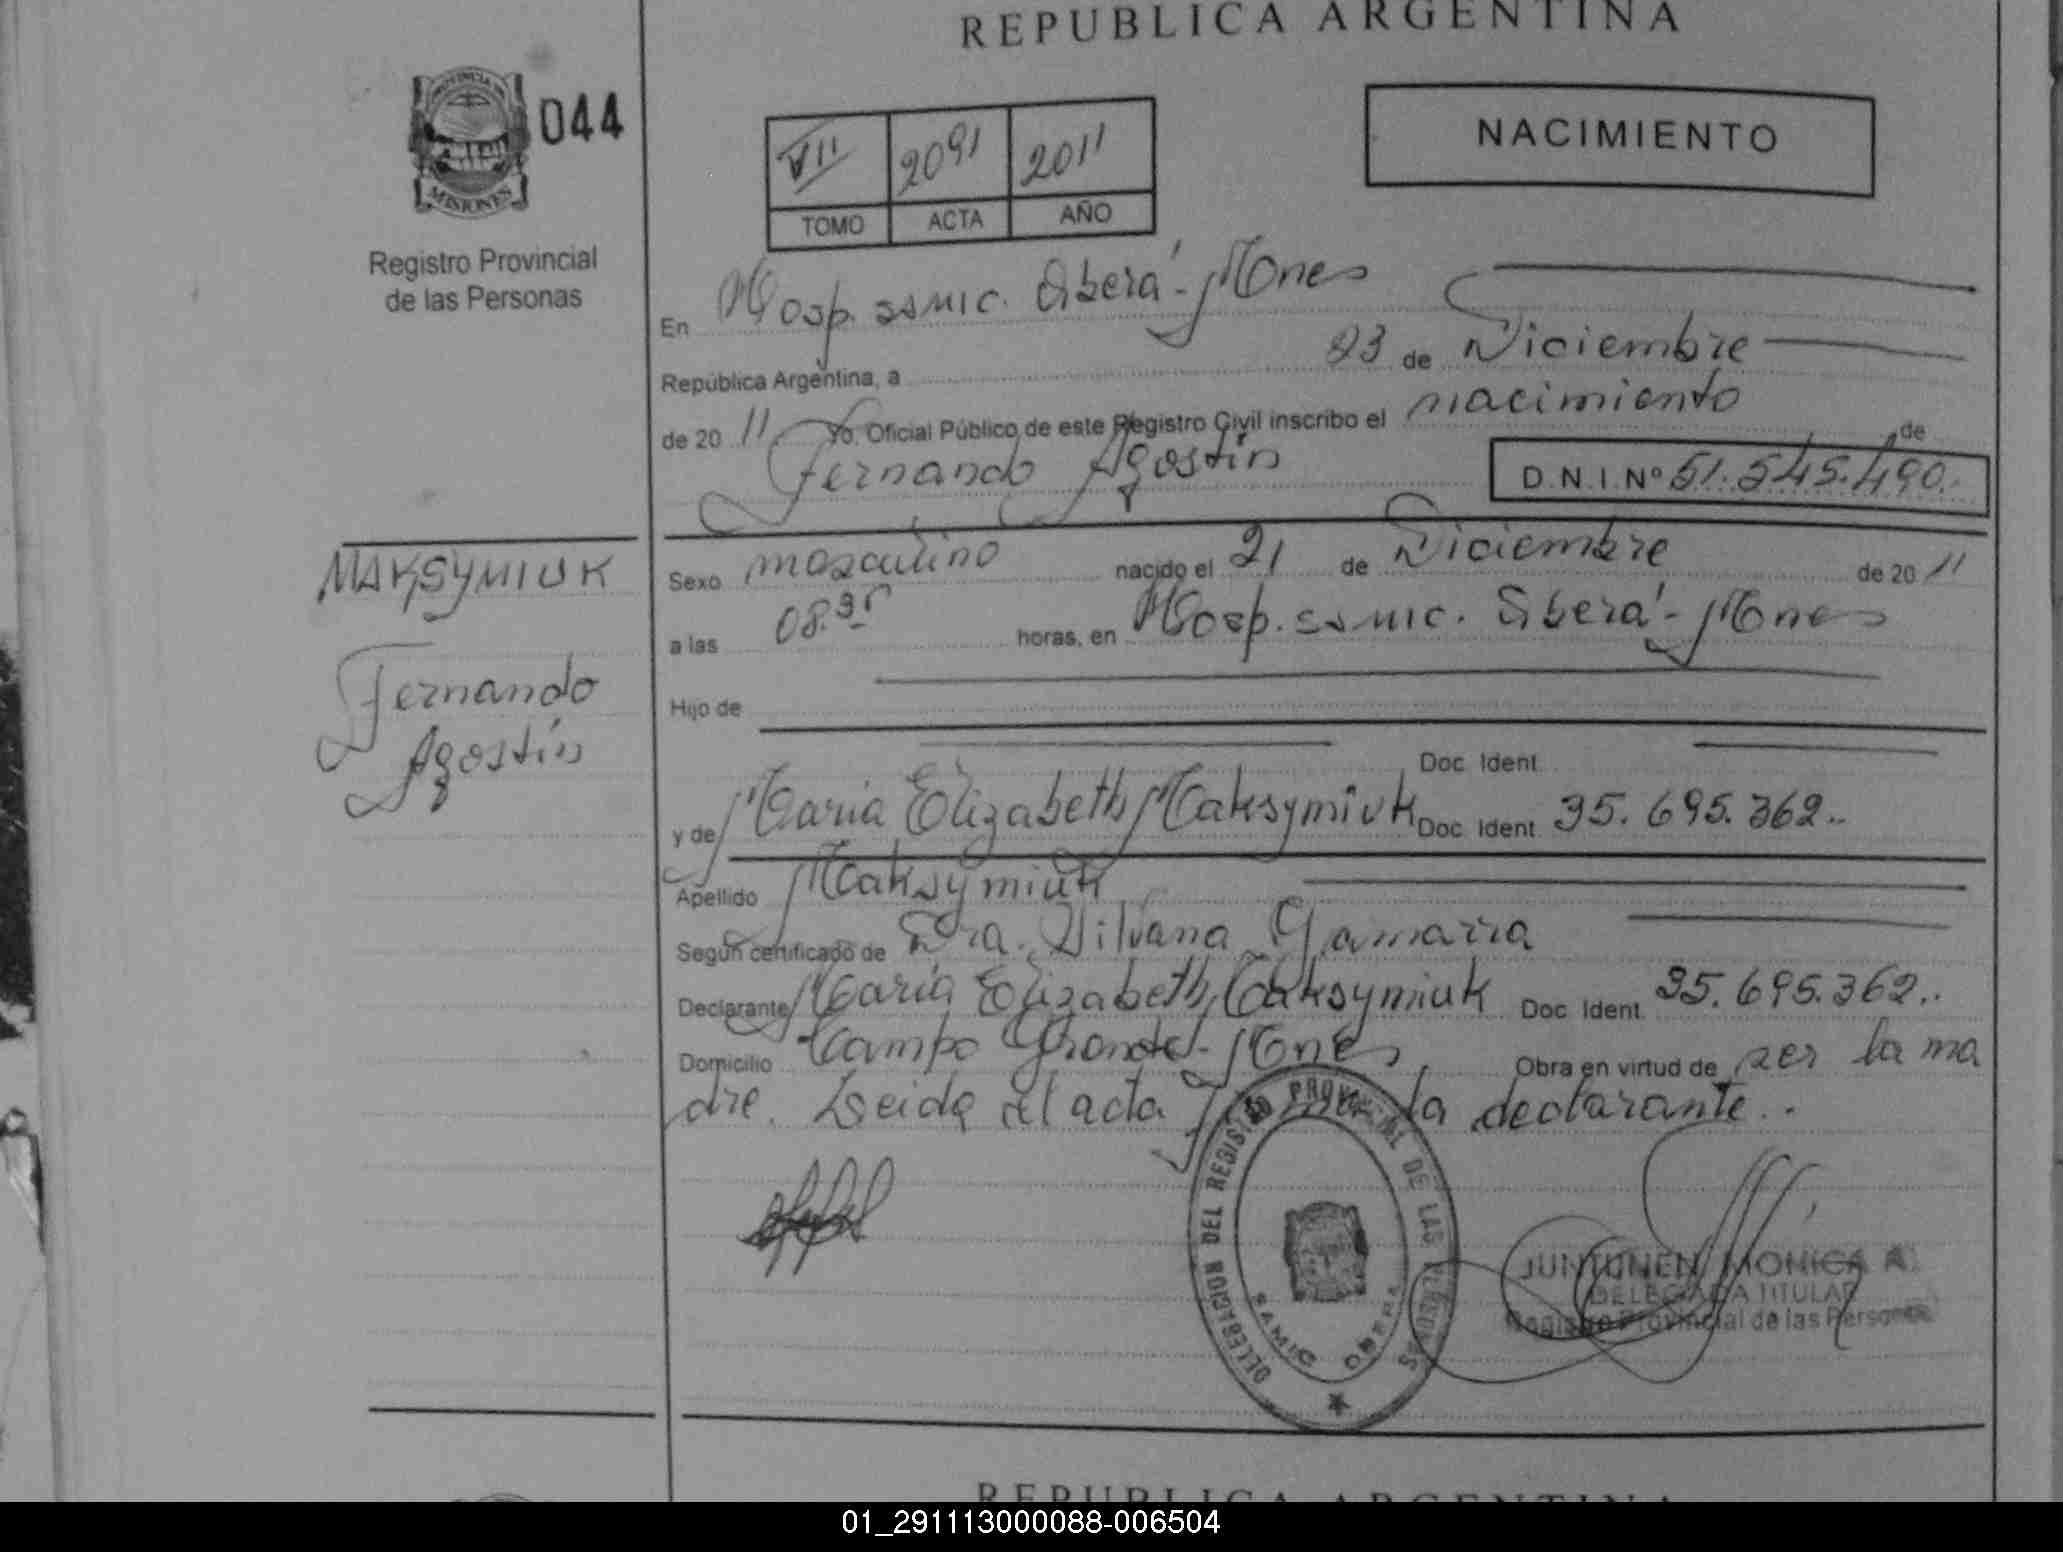 REPUBLICA ARGENTINA
PROVINCIA DE
MISIONES
044
Registro Provincial
de las Personas
NACIMIENTO
VII 2091 2011
TOMO ACTA AÑO
En Hosp. SAMIC. Oberá - Mones
República Argentina, a 23 de Diciembre
de 20 11 Yo. Oficial Público de este Registro Civil inscribo el nacimiento de
Fernando Agostín D.N.I.Nº 51.545.490.
MAKSYMIUK
Fernando
Agostín
Sexo masculino nacido el 21 de Diciembre de 20 11
a las 08.35 horas, en Hosp. SAMIC. Oberá - Mones
Hijo de
Doc Ident
y de Maria Elizabeth Maksymiuk Doc Ident 35.695.362..
Apellido Maksymiuk
Según certificado de Dra. Silvana Gamarra
Declarante Maria Elizabeth Maksymiuk Doc Ident 35.695.362..
Domicilio Campo Grande - Mones Obra en virtud de ser la ma
dre. Leida el acta la declarante..
DELEGACION DEL REGISTRO PROVINCIAL DE LAS PERSONAS
SAMIC OBERA
JUNTUNEN MONICA A.
DELEGADA TITULAR
Registro Provincial de las Personas
REPUBLICA ARGENTINA
01_291113000088-006504